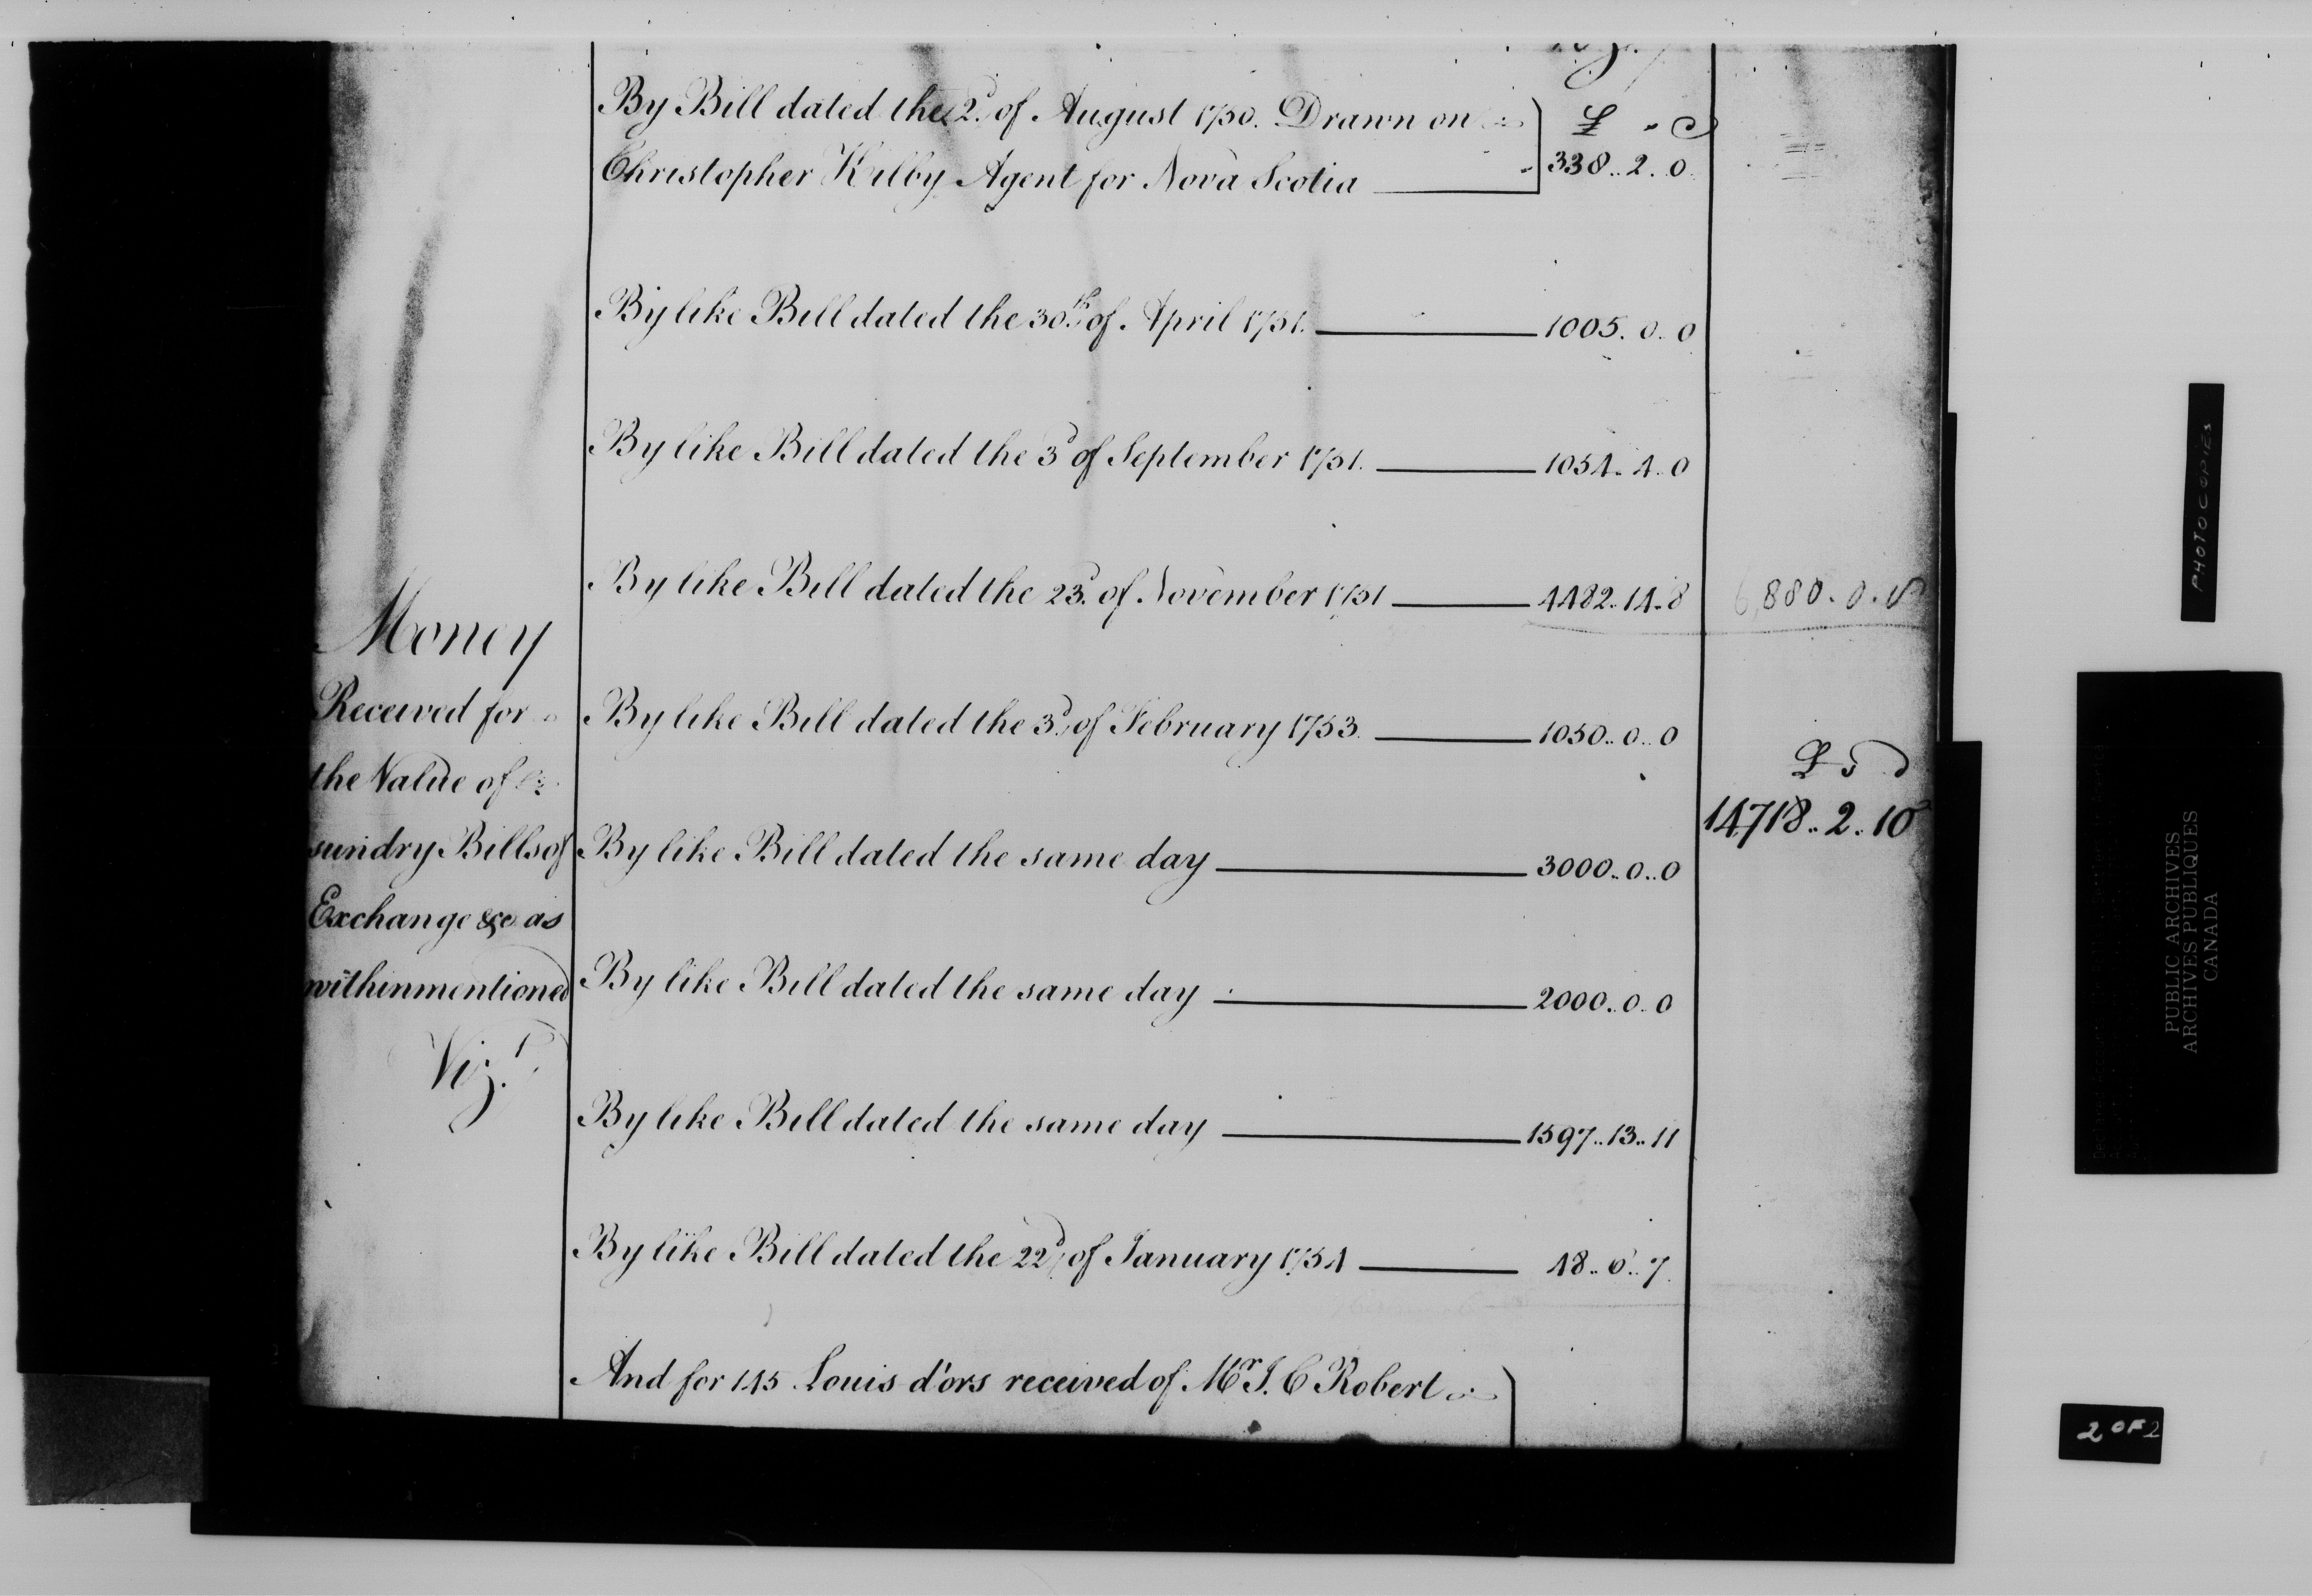 By Bill dated the 2.d of August 1750. Drawn on
Christopher Kilby Agent for Nova Scotia
£ s d
338.. 2. 0
By like Bill dated the 30.th of April 1751. 1005. 0. 0
By like Bill dated the 3d of September 1751. 1054. 4. 0
By like Bill dated the 23.d of November 1751 4482. 14. 8
6,880. 0. 8
Money
Received for
the Value of
sundry Bills of
Exchange &c as
withinmentioned
Viz.t
By like Bill dated the 3.d of February 1753. 1050.. 0.. 0
£ s d
14718.. 2.. 10
By like Bill dated the same day 3000.. 0.. 0
By like Bill dated the same day 2000.. 0.. 0
By like Bill dated the same day 1597.. 13.. 11
By like Bill dated the 22d of January 1754 48.. 6.. 7
And for 145 Louis d'ors received of Mr J. C Robert
PHOTOCOPIES
PUBLIC ARCHIVES
ARCHIVES PUBLIQUES
CANADA
2 OF 2